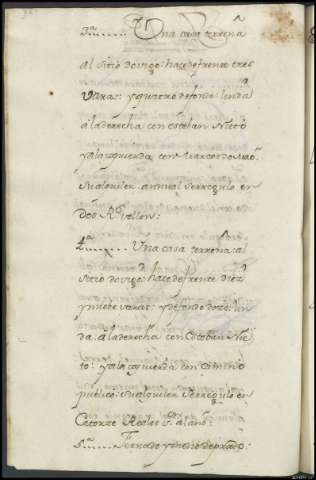 3ª....... Una casa terrena
al sitio do vigo: hace de frente tres
Varas: y quatro de fondo: linda
a la derecha con esteban Nieto
y a la izquierda con Marcos do
Su alquiler annual se reguló en
dos Rˢ vellon:
4ª....... Una casa terrena: al
sitio do vigo: hace de frente diez
y nuebe varas: y de fondo doze: lin
da: a la derecha con Esteban Nie
to: y a la izquierda con camino
publico: su alquiler se reguló en
Catorze Reales Vⁿ al año:
5ª....... Ferrado y medio de prado: